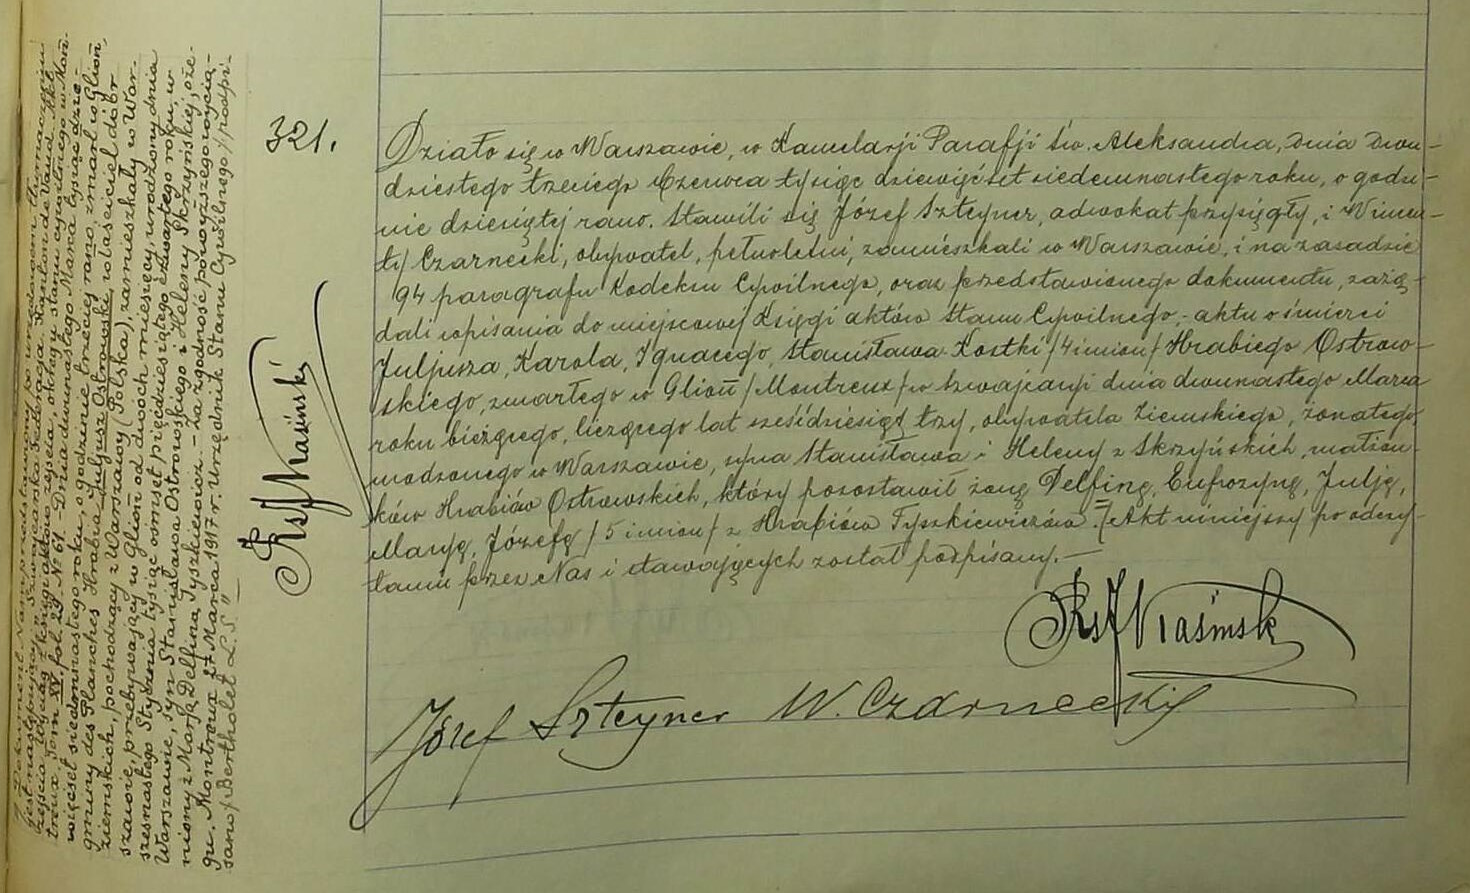 321.
Działo się w Warszawie, w Kancelarji Parafji Św. Aleksandra, dnia dwu-
dziestego trzeciego Czerwca tysiąc dziewięćset siedemnastego roku, o godzi-
nie dziesiątej rano. Stawili się Józef Szteyner, adwokat przysięgły, i Wincen-
ty Czarnecki, obywatel, pełnoletni, zamieszkali w Warszawie, i na zasadzie
94 paragrafu Kodeksu Cywilnego, oraz przedstawionego dokumentu, zażą-
dali wpisania do miejscowej Księgi aktów Stanu Cywilnego, - aktu o śmierci
Juljusza, Karola, Ignacego, Stanisława-Kostki /4 imion/ Hrabiego Ostrow-
skiego, zmarłego w Glion /Montreux/ w Szwajcaryi dnia dwunastego Marca
roku bieżącego, liczącego lat sześćdziesiąt trzy, obywatela Ziemskiego, żonatego,
urodzonego w Warszawie, syna Stanisława i Heleny z Skrzyńskich, małżon-
ków Hrabiów Ostrowskich, który pozostawił żonę Delfinę, Eufrozynę, Julję,
Maryę, Józefę /5 imion/ z Hrabiów Tyszkiewiczów. Akt niniejszy po odczy-
taniu przez Nas i stawających został podpisany. —
Józef Szteyner W. Czarnecki
Dokument Nam przedstawiony po urzędowem tłumaczeniu
jest następujący: Szwajcarska Federacja. Kanton de Vaud. Akt
zejścia. Wyciąg z ksiąg aktów zejścia, okręgu stanu cywilnego w Mon-
treux. Tom XV. fol. 29. № 61. - Dnia dwunastego Marca tysiąc dzie-
więćset siedemnastego roku, o godzinie trzeciej rano, zmarł w Glion,
gminy des Planches Hrabia Juljusz Ostrowski, właściciel dóbr
ziemskich, pochodzący z Warszawy (Polska), zamieszkały w War-
szawie, przebywający w Glion od dwóch miesięcy, urodzony dnia
szesnastego Stycznia tysiąc ośmset pięćdziesiątego czwartego roku, w
Warszawie, syn Stanisława Ostrowskiego i Heleny Skrzyńskiej, oże-
niony z Marją Delfiną Tyszkiewicz. - Za zgodność powyższego wycią-
gu. Montreux 27 Marca 1917 r. Urzędnik Stanu Cywilnego /podpi-
sano/ Berthollet L. S."